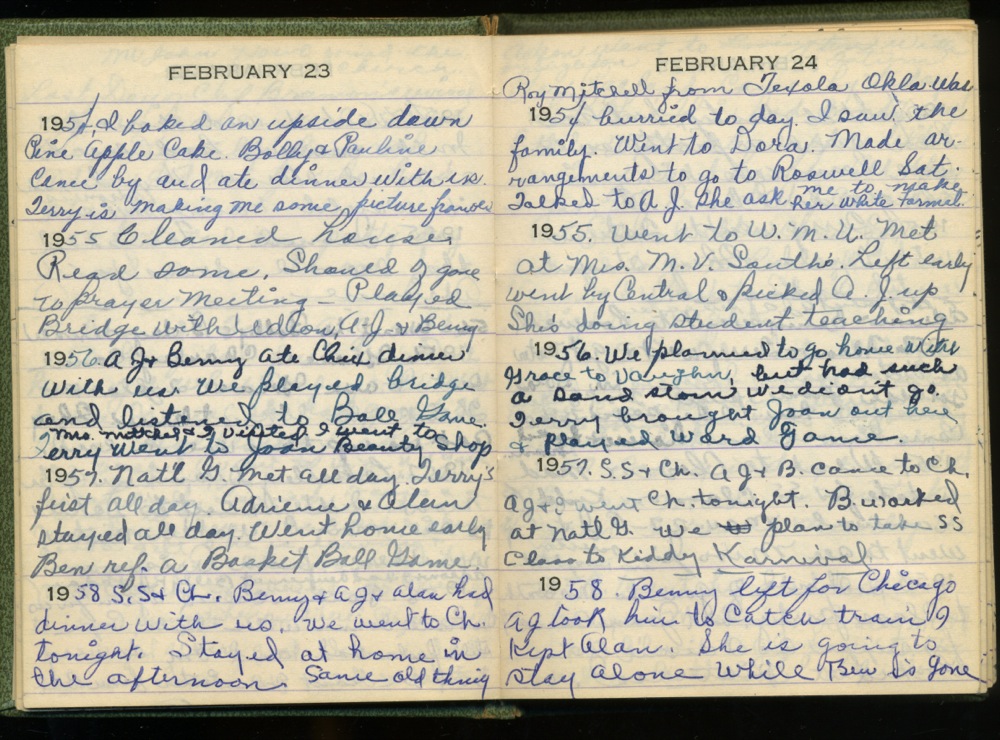 FEBRUARY 23
1954, I baked an upside down
Pine Apple Cake. Bobby & Pauline
Came by and ate dinner with us.
Terry is making me some picture frames
1955 Cleaned house,
Read some, Should of gone
to prayer Meeting - Played
Bridge with Udson, A J. & Benny
1956. A J & Benny ate Chix dinner
with us. We played bridge
and listened to Ball Game.
Mrs. Mitchel & I visited I went to
Terry Went to Joan Beauty Shop
1957. Nat'l G. Met all day. Terry's
first all day. Adrienne & Alan
stayed all day. Went home early
Ben ref. a Basket Ball Game.
1958 S.S & Ch. Benny & A J & Alan had
dinner with us. We went to Ch.
tonight. Stayed at home in
the afternoon. Same old thing
FEBRUARY 24
Roy Mitchell from Texola Okla Was
1954 burried to day. I saw the
family. Went to Dora. Made ar-
rangements to go to Roswell Sat.
Talked to A J. She ask me to make
her white formal.
1955. Went to W. M. U. Met
at Mrs. M. V. South's. Left early
went by Central & picked A. J. up
She's doing student teaching
1956. We planned to go home with
Grace to Vaughn, but had such
a sand storm we didn't go.
Terry brought Joan out here
& played Word Game.
1957. S.S & Ch. A J & B. came to Ch.
A J & I went Ch. tonight. B. worked
at Natl G. We plan to take SS
Class to Kiddy Karnival
1958. Benny left for Chicago
A J took him to catch train I
Kept Alan. She is going to
stay alone while Ben is gone